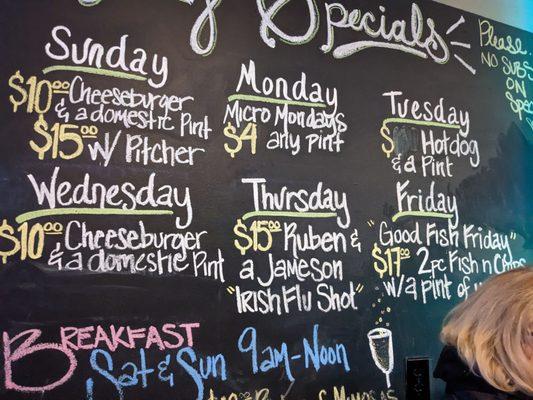 Specials
Please
NO SUBS
ON
Sunday
$10.00 Cheeseburger
& a domestic Pint
$15.00 w/ Pitcher
Monday
Micro Mondays
$4 any pint
Tuesday
Hotdog
& a Pint
Wednesday
$10.00 Cheeseburger
& a domestic Pint
Thursday
$15.00 Ruben &
a Jameson
"Irish Flu Shot"
Friday
"Good Fish Friday"
$17.00 2pc Fish n Chips
w/ a pint of
BREAKFAST
Sat & Sun 9am-Noon